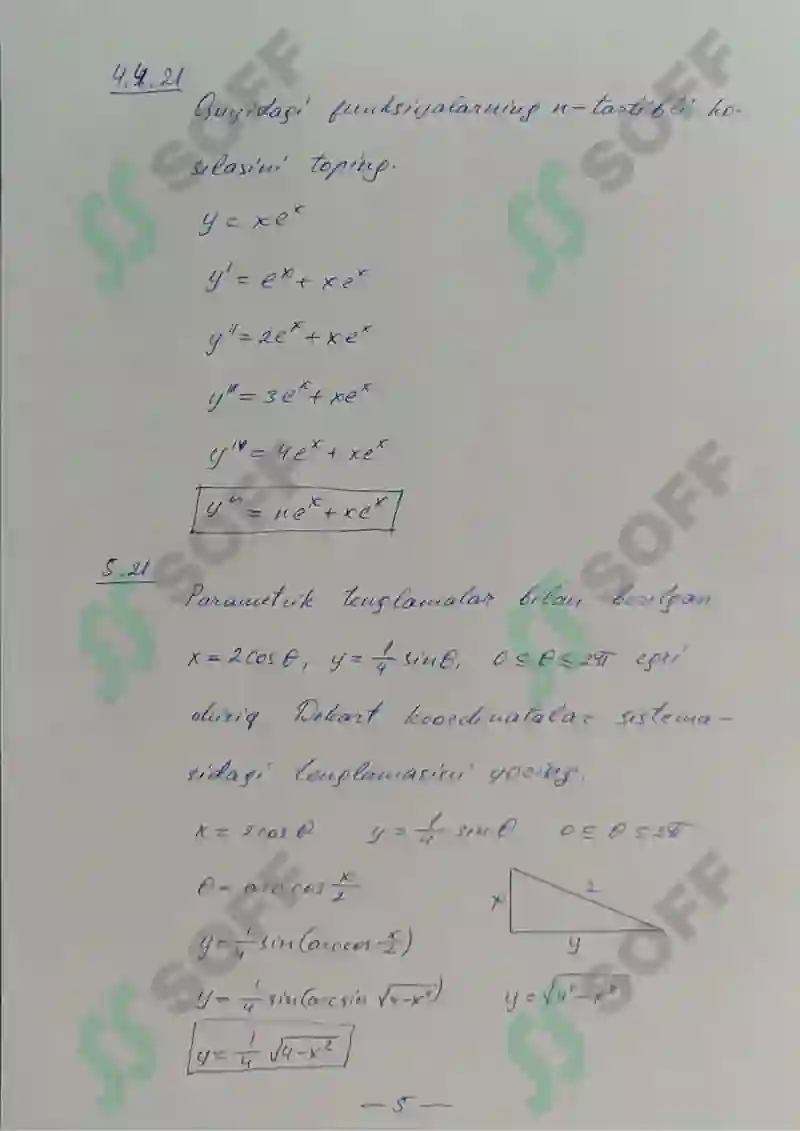 4.4.21
Quyidagi funksiyalarning n-tartibli ho-
silasini toping.
y = xeˣ
y' = eˣ + xeˣ
y'' = 2eˣ + xeˣ
y''' = 3eˣ + xeˣ
yᴵⱽ = 4eˣ + xeˣ
yⁿ = neˣ + xeˣ
5.21
Parametrik tenglamalar bilan berilgan
x = 2cosθ, y = 1/4 sinθ, 0 ≤ θ ≤ 2π egri
chiziq Dekart koordinatalar sistema-
sidagi tenglamasini yozing.
x = 2cosθ y = 1/4 sinθ 0 ≤ θ ≤ 2π
θ = arccos x/2
x 2
y
y = 1/4 sin(arccos x/2)
y = 1/4 sin(arcsin √4-x²) y = √4²-x²
y = 1/4 √4-x²
— 5 —
SOFF
SOFF
SOFF
SOFF
SOFF
SOFF